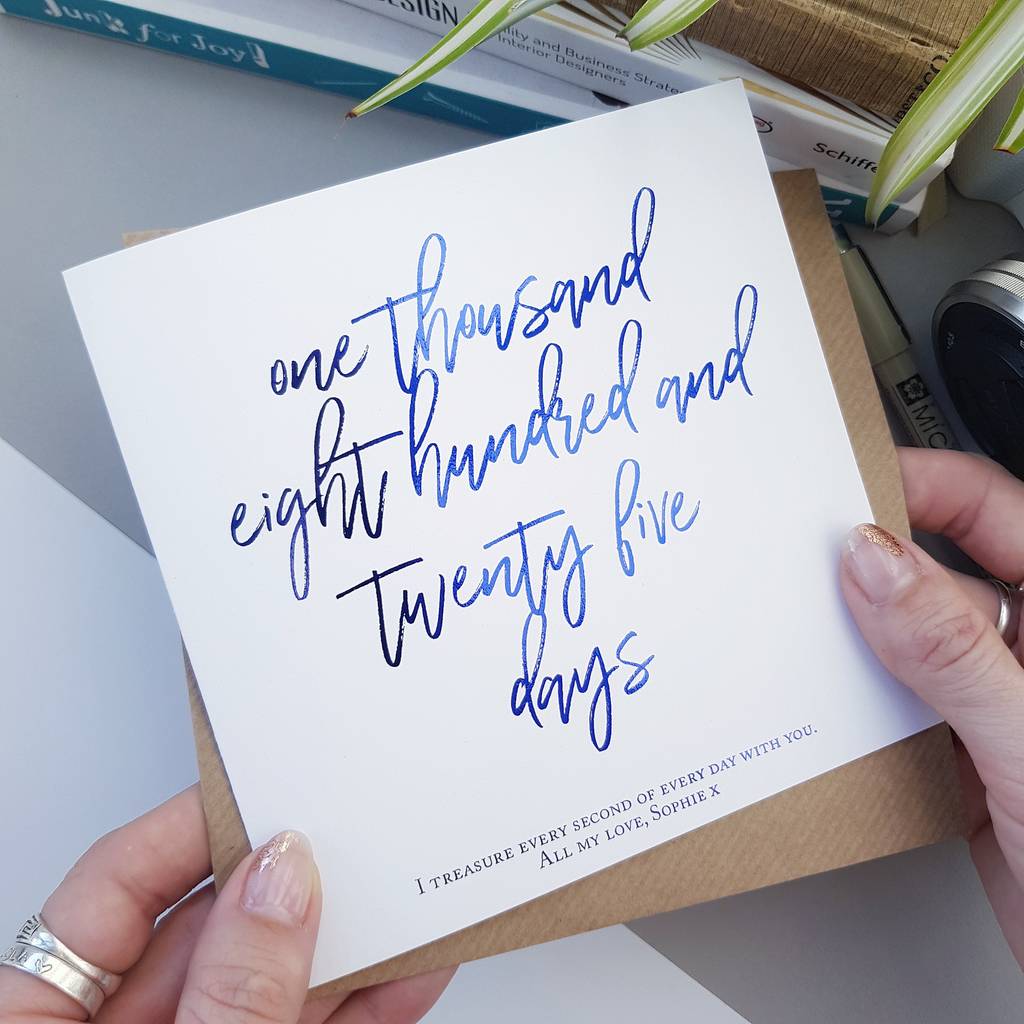 Junk for Joy!
DESIGN
and Business
Interior Designers
Schiffe
one thousand
eight hundred and
twenty five
days
I treasure every second of every day with you.
All my love, Sophie x